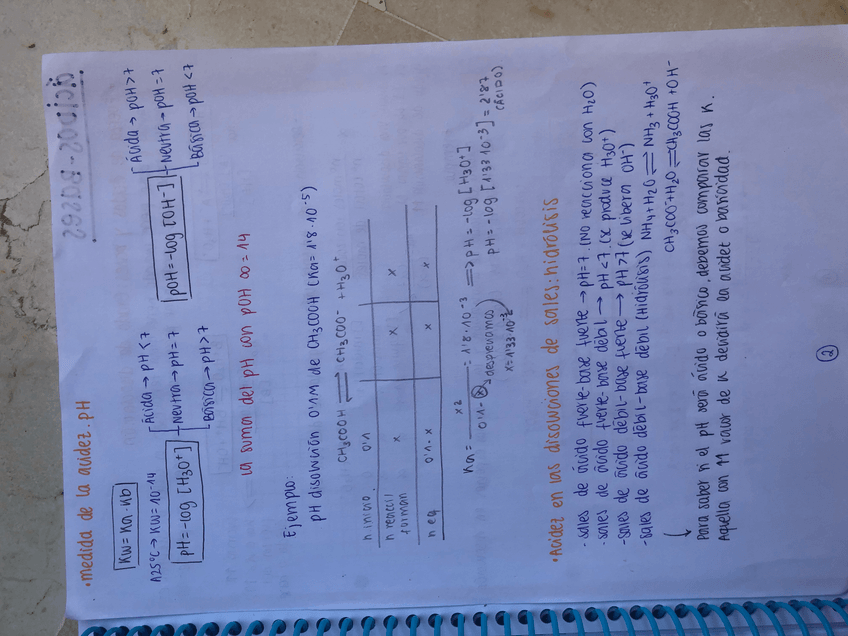 •medida de la acidez. pH
Kw=Ka·Kb
A25°C→Kw=10-14
pH=-log [H3O+]
Ácida → pH<7
Neutra→pH=7
Básica→pH>7
pOH=-log [OH-]
Ácida→ pOH>7
Neutra→pOH=7
Básica→pOH<7
la suma del pH con pOH ∞=14
Ejemplo:
pH disolución 0'1M de CH3COOH (Ka=1'8·10-5)
CH3COOH ⇌ CH3COO- +H3O+
n inicio. 0'1
n reacc// x x x
forman
n eq 0'1-x x x
Ka= x2 / 0'1-x =1'8·10-3 ⟹pH=-log[H3O+]
despreciamos
x=1'33·10-3
pH=-log [1'33·10-3]=2'87
(ÁCIDO)
•Acidez en las disoluciones de sales:hidrólisis
-sales de ácido fuerte-base fuerte →pH=7.(No reacciona con H2O)
-sales de ácido fuerte-base débil → pH<7.(se produce H3O+)
-sales de ácido débil-base fuerte → pH>7 (se libera OH-)
-sales de ácido débil-base débil (Hidrólisis) NH4+H2O⇌NH3+H3O+
CH3COO-+H2O⇌CH3COOH+OH-
↳
Para saber si el pH será ácido o básico, debemos comparar las K.
Aquella con ↑↑ valor de K decidirá en acidez o basicidad.
2